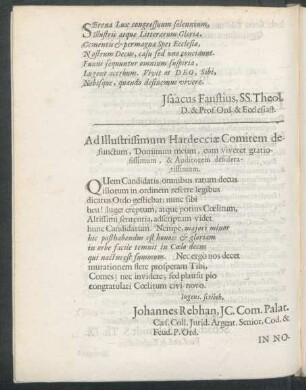 SErena Lux congressuum solennium,
Illustris atque Litterarum Gloria,
Clementis & permagna Spes Ecclesiæ,
Nostrum Decus, casu sed uno concidunt.
Funus sequuntur omnium suspiria,
Lugent acerbum. Vivit at DEO, Sibi,
Nobisque, quando desinemus vivere.
Jsaacus Faustius, SS. Theol.
D. & Prof. Ord. & Ecclesiast.
Ad Illustrissimum Hardecciæ Comitem de-
functum, Dominum meum, cum viveret gratio-
sissimum, & Auditorem desidera-
tissimum.
QUem Candidatis omnibus rarum decus
illorum in ordinem referre legibus
dicatus Ordo gestiebat: nunc sibi
heu! luget ereptum, atque potius Cœlitum,
Altissimi sententia, adscriptum videt
hunc Candidatum. Nempe, majori minor
hic posthabendus est honos: & gloriam
in orbe facile temnit in Cœlo decus
qui nactus est summum. Nec ergò nos decet
mutationem flere prosperam Tibi,
Comes; nec invidere; sed plausu pio
congratulari Cœlitum civi novo.
lugens scribeb.
Johannes Rebhan, JC. Com. Palat.
Cæs. Coll. Jurid. Argent. Senior, Cod. &
Feud. P. Ord.
IN NO-